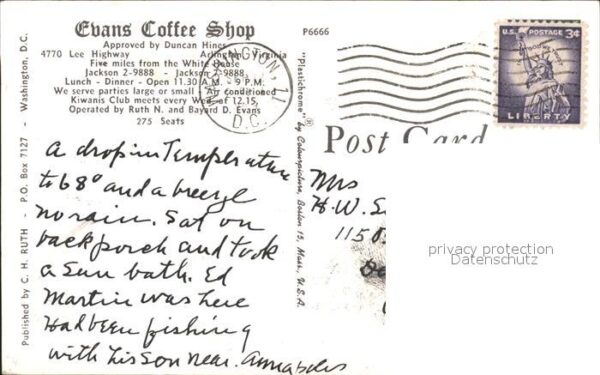 Evans Coffee Shop
Approved by Duncan Hines
4770 Lee Highway Arlington, Virginia
Five miles from the White House
Jackson 2-9888 - Jackson 7-9888
Lunch - Dinner - Open 11.30 A.M. - 9 P.M.
We serve parties large or small Air conditioned
Kiwanis Club meets every Wed. at 12.15,
Operated by Ruth N. and Bayard D. Evans
275 Seats
P6666
A drop in Temperature
to 68° and a breeze
no rain. Sat on
back porch and took
a Sun bath. Ed
Martin was here
Had been fishing
with his son near Annapolis
Published by C. H. RUTH - P.O. Box 7127 - Washington, D.C.
"Plastichrome"® by Colourpicture, Boston 15, Mass., U.S.A.
WASHINGTON, 11
D.C.
U.S. POSTAGE 3¢
IN GOD WE TRUST
LIBERTY
Post Card
Mrs
H. W.
115
privacy protection
Datenschutz